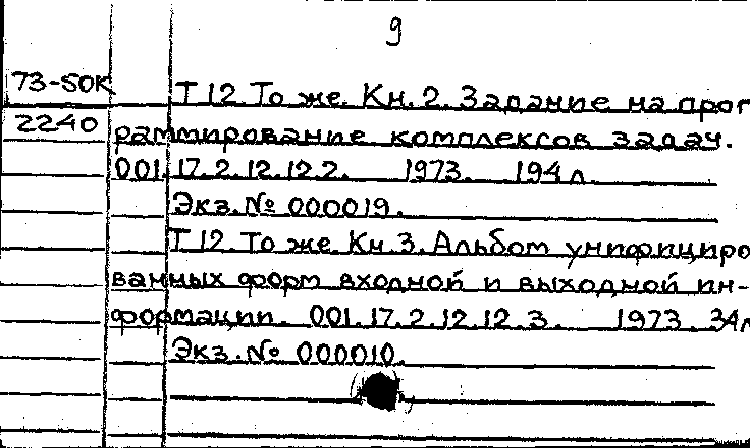 9
73-50К
Т12. То же. Кн. 2. Задание на прог
2240
раммирование комплексов задач.
001.17.2.12.12.2. 1973. 194 л.
Экз. № 000019.
Т12. То же. Кн. 3. Альбом унифициро
ванных форм входной и выходной ин-
формации. 001.17.2.12.12.3. 1973. 34л
Экз. № 000010.